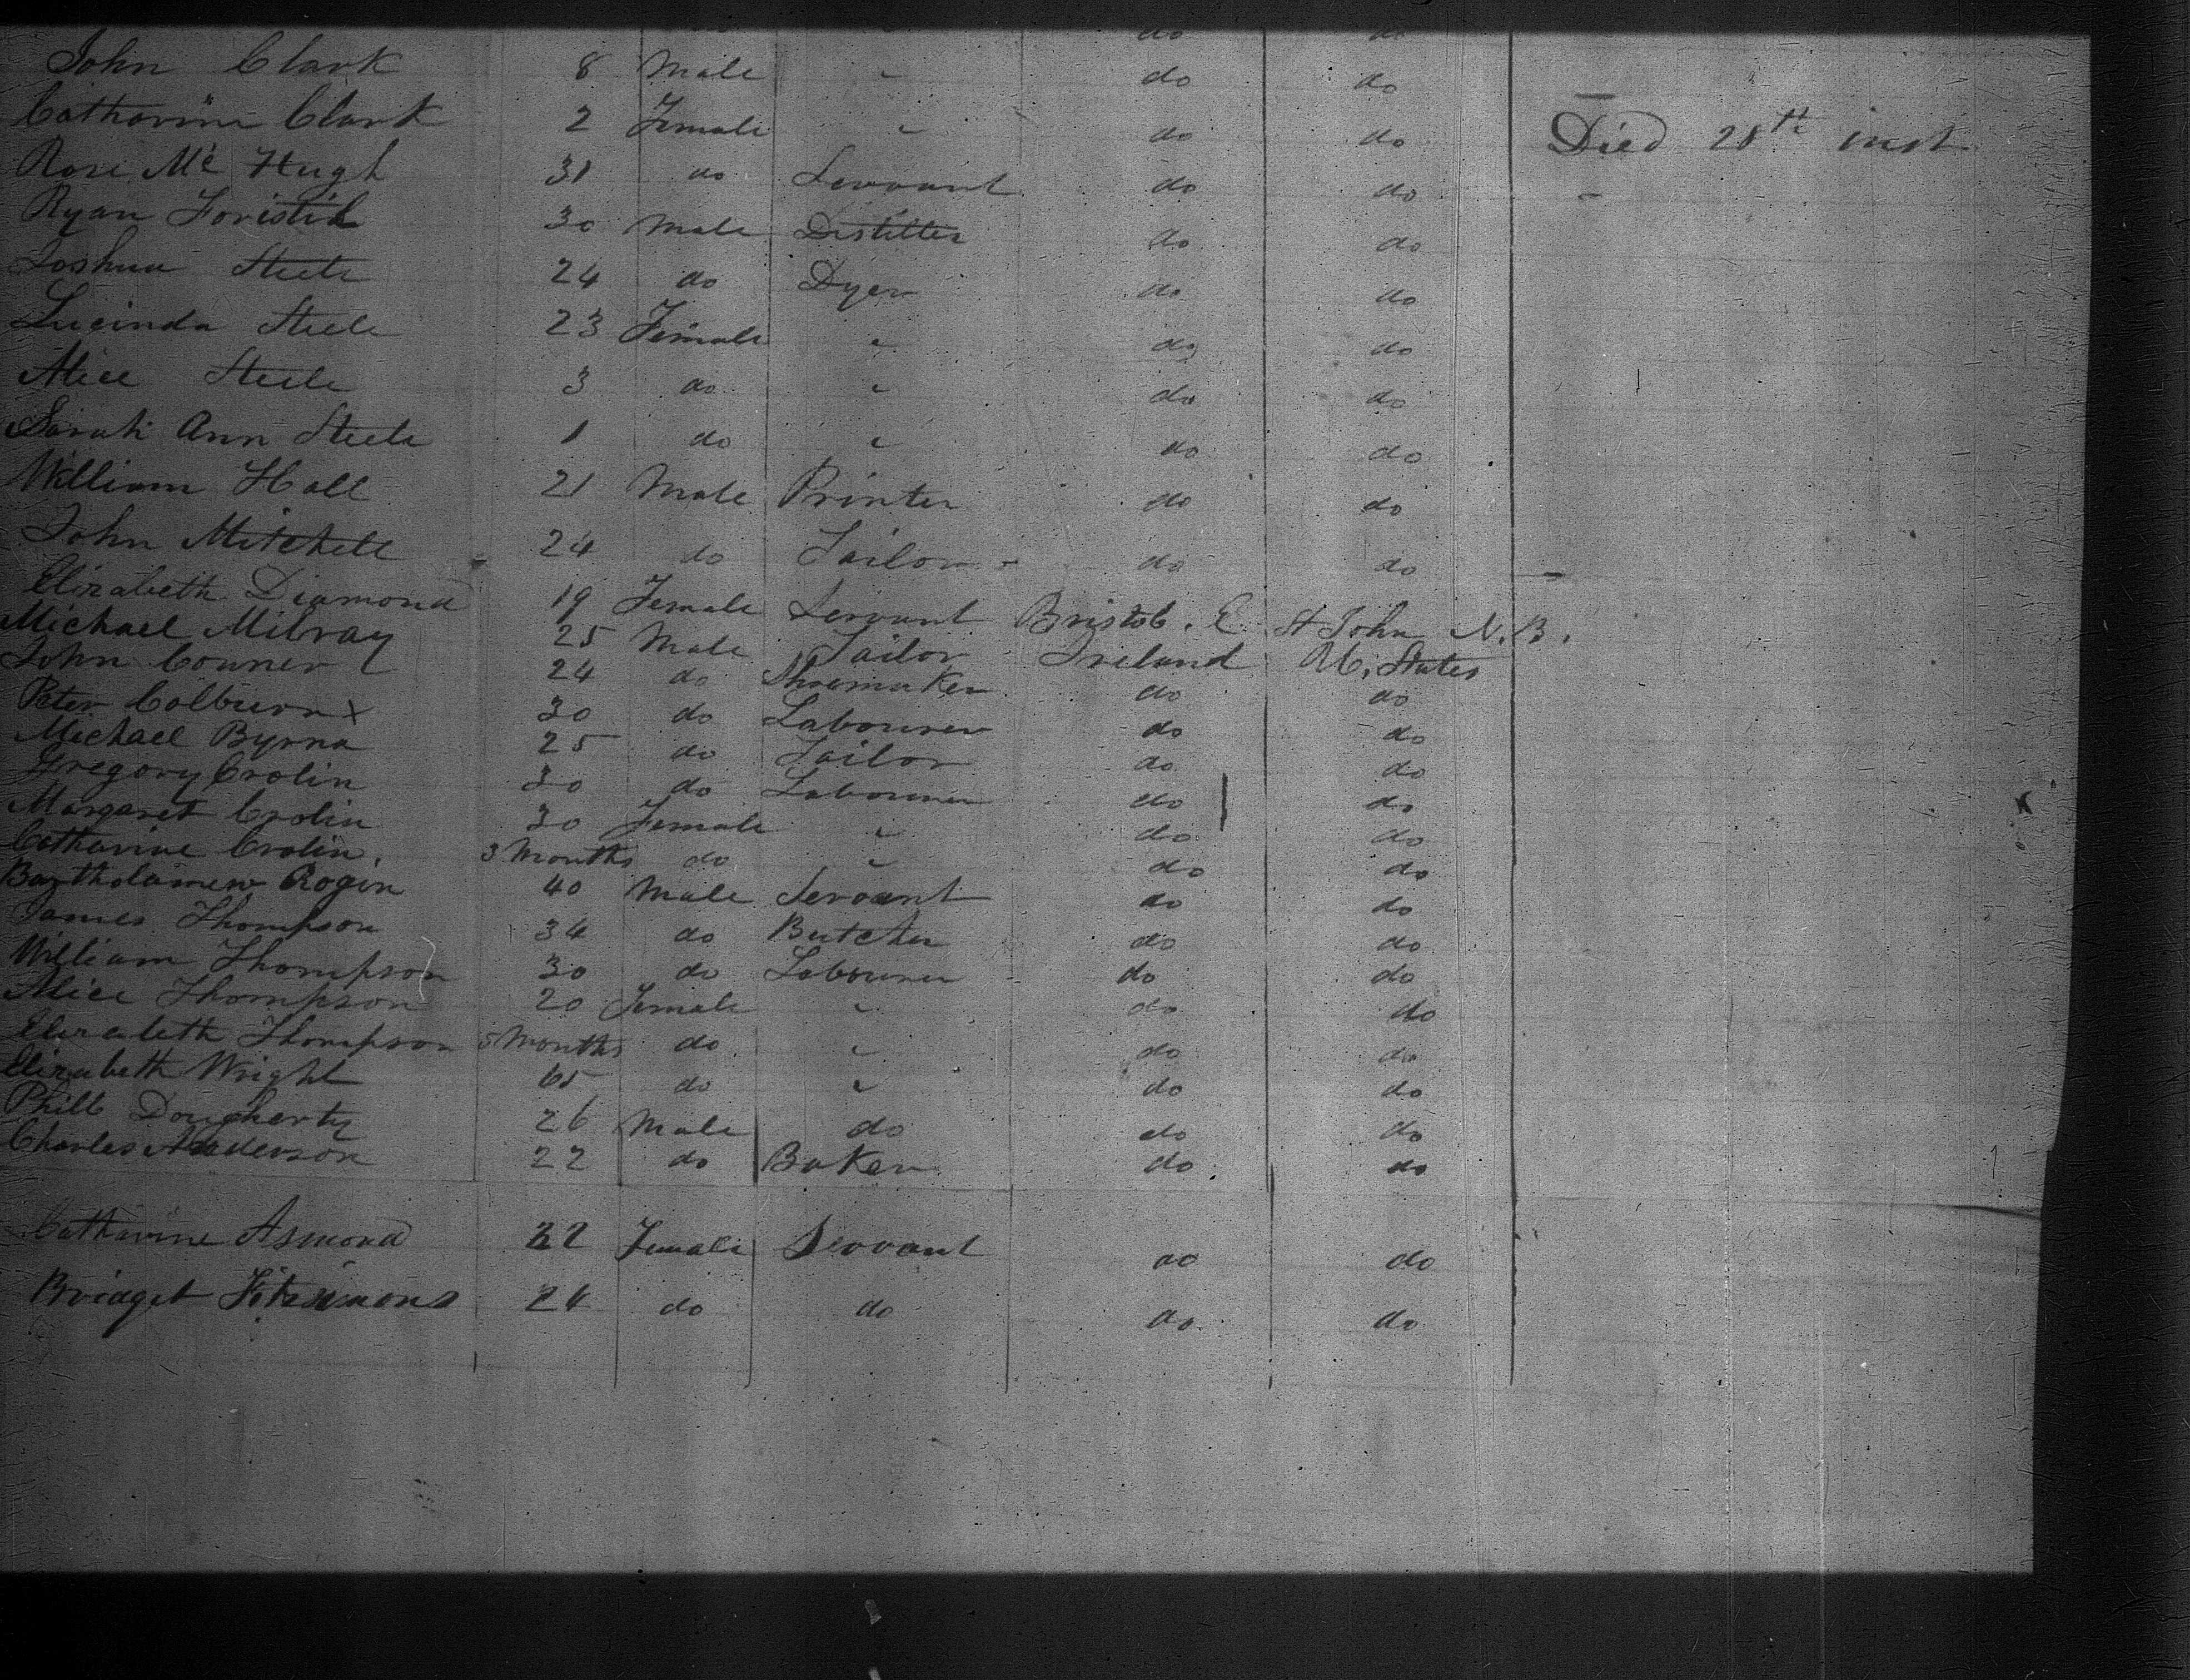 do do
John Clark 8 Male " do do
Catharine Clark 2 Female " do do Died 28th inst
Rose Mc Hugh 31 do Servant do do
Ryan Foristil 30 Male Distiller do do
Joshua Steele 24 do Dyer do do
Lucinda Steele 23 Female " do do
Alice Steele 3 do " do do
Sarah Ann Steele 1 do " do do
William Hall 21 Male Printer do do
John Mitchell 24 do Tailor do do
Elizabeth Diamond 19 Female Servant Bristol. E. St John N. B.
Michael Milray 25 Male Tailor Ireland U. States
John Conner 24 do Shoemaker do do
Peter Colburn x 30 do Labourer do do
Michael Byrna 25 do Tailor do do
Gregory Crolin 30 do Labourer do do
Margaret Crolin 30 Female " do do
Catharine Crolin. 3 Months do " do do
Bartholamew Rogin 40 Male Servant do do
James Thompson 34 do Butcher do do
William Thompson 30 do Labourer do do
Alice Thompson 20 Female " do do
Elizabeth Thompson Months do " do do
Elizabeth Wright 65 do " do do
Phill Dougherty 26 Male do do do
Charles Anderson 22 do Baker do do
Catharine Asmond 22 Female Servant do do
Bridget Fitzsimons 24 do do do do